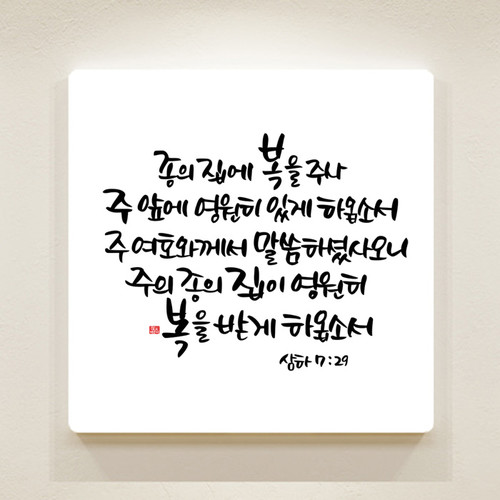 종의 집에 복을 주사
주 앞에 영원히 있게 하옵소서
주 여호와께서 말씀하셨사오니
주의 종의 집이 영원히
복을 받게 하옵소서
삼하 7:29